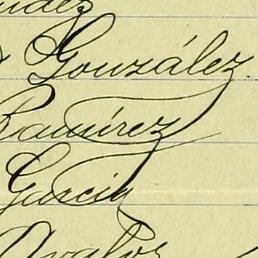 González.
Ramírez
García
Avalos